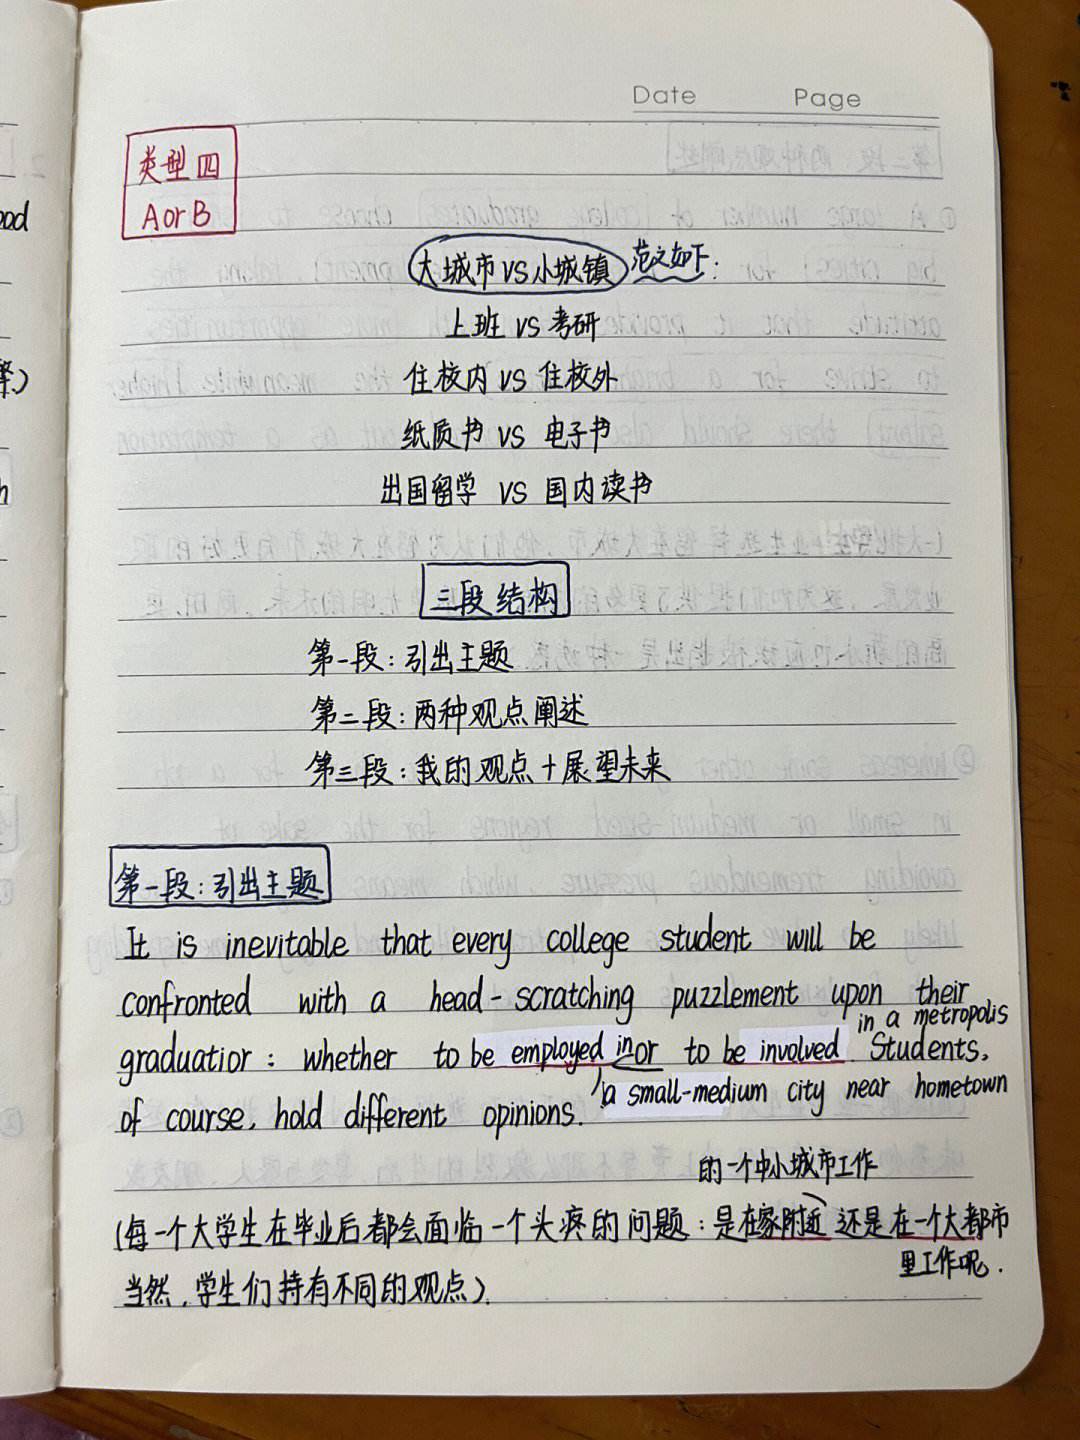 Date Page
类型四
A or B
大城市 vs 小城镇 范文如下:
上班 vs 考研
住校内 vs 住校外
纸质书 vs 电子书
出国留学 vs 国内读书
三段结构
第一段:引出主题
第二段:两种观点阐述
第三段:我的观点+展望未来
第一段:引出主题
It is inevitable that every college student will be
confronted with a head-scratching puzzlement upon their
in a metropolis
graduatior: whether to be employed in or to be involved. Students,
a small-medium city near hometown
of course, hold different opinions.
的一个中小城市工作
(每一个大学生在毕业后都会面临一个头疼的问题:是在家附近还是在一个大都市
里工作呢.
当然,学生们持有不同的观点).